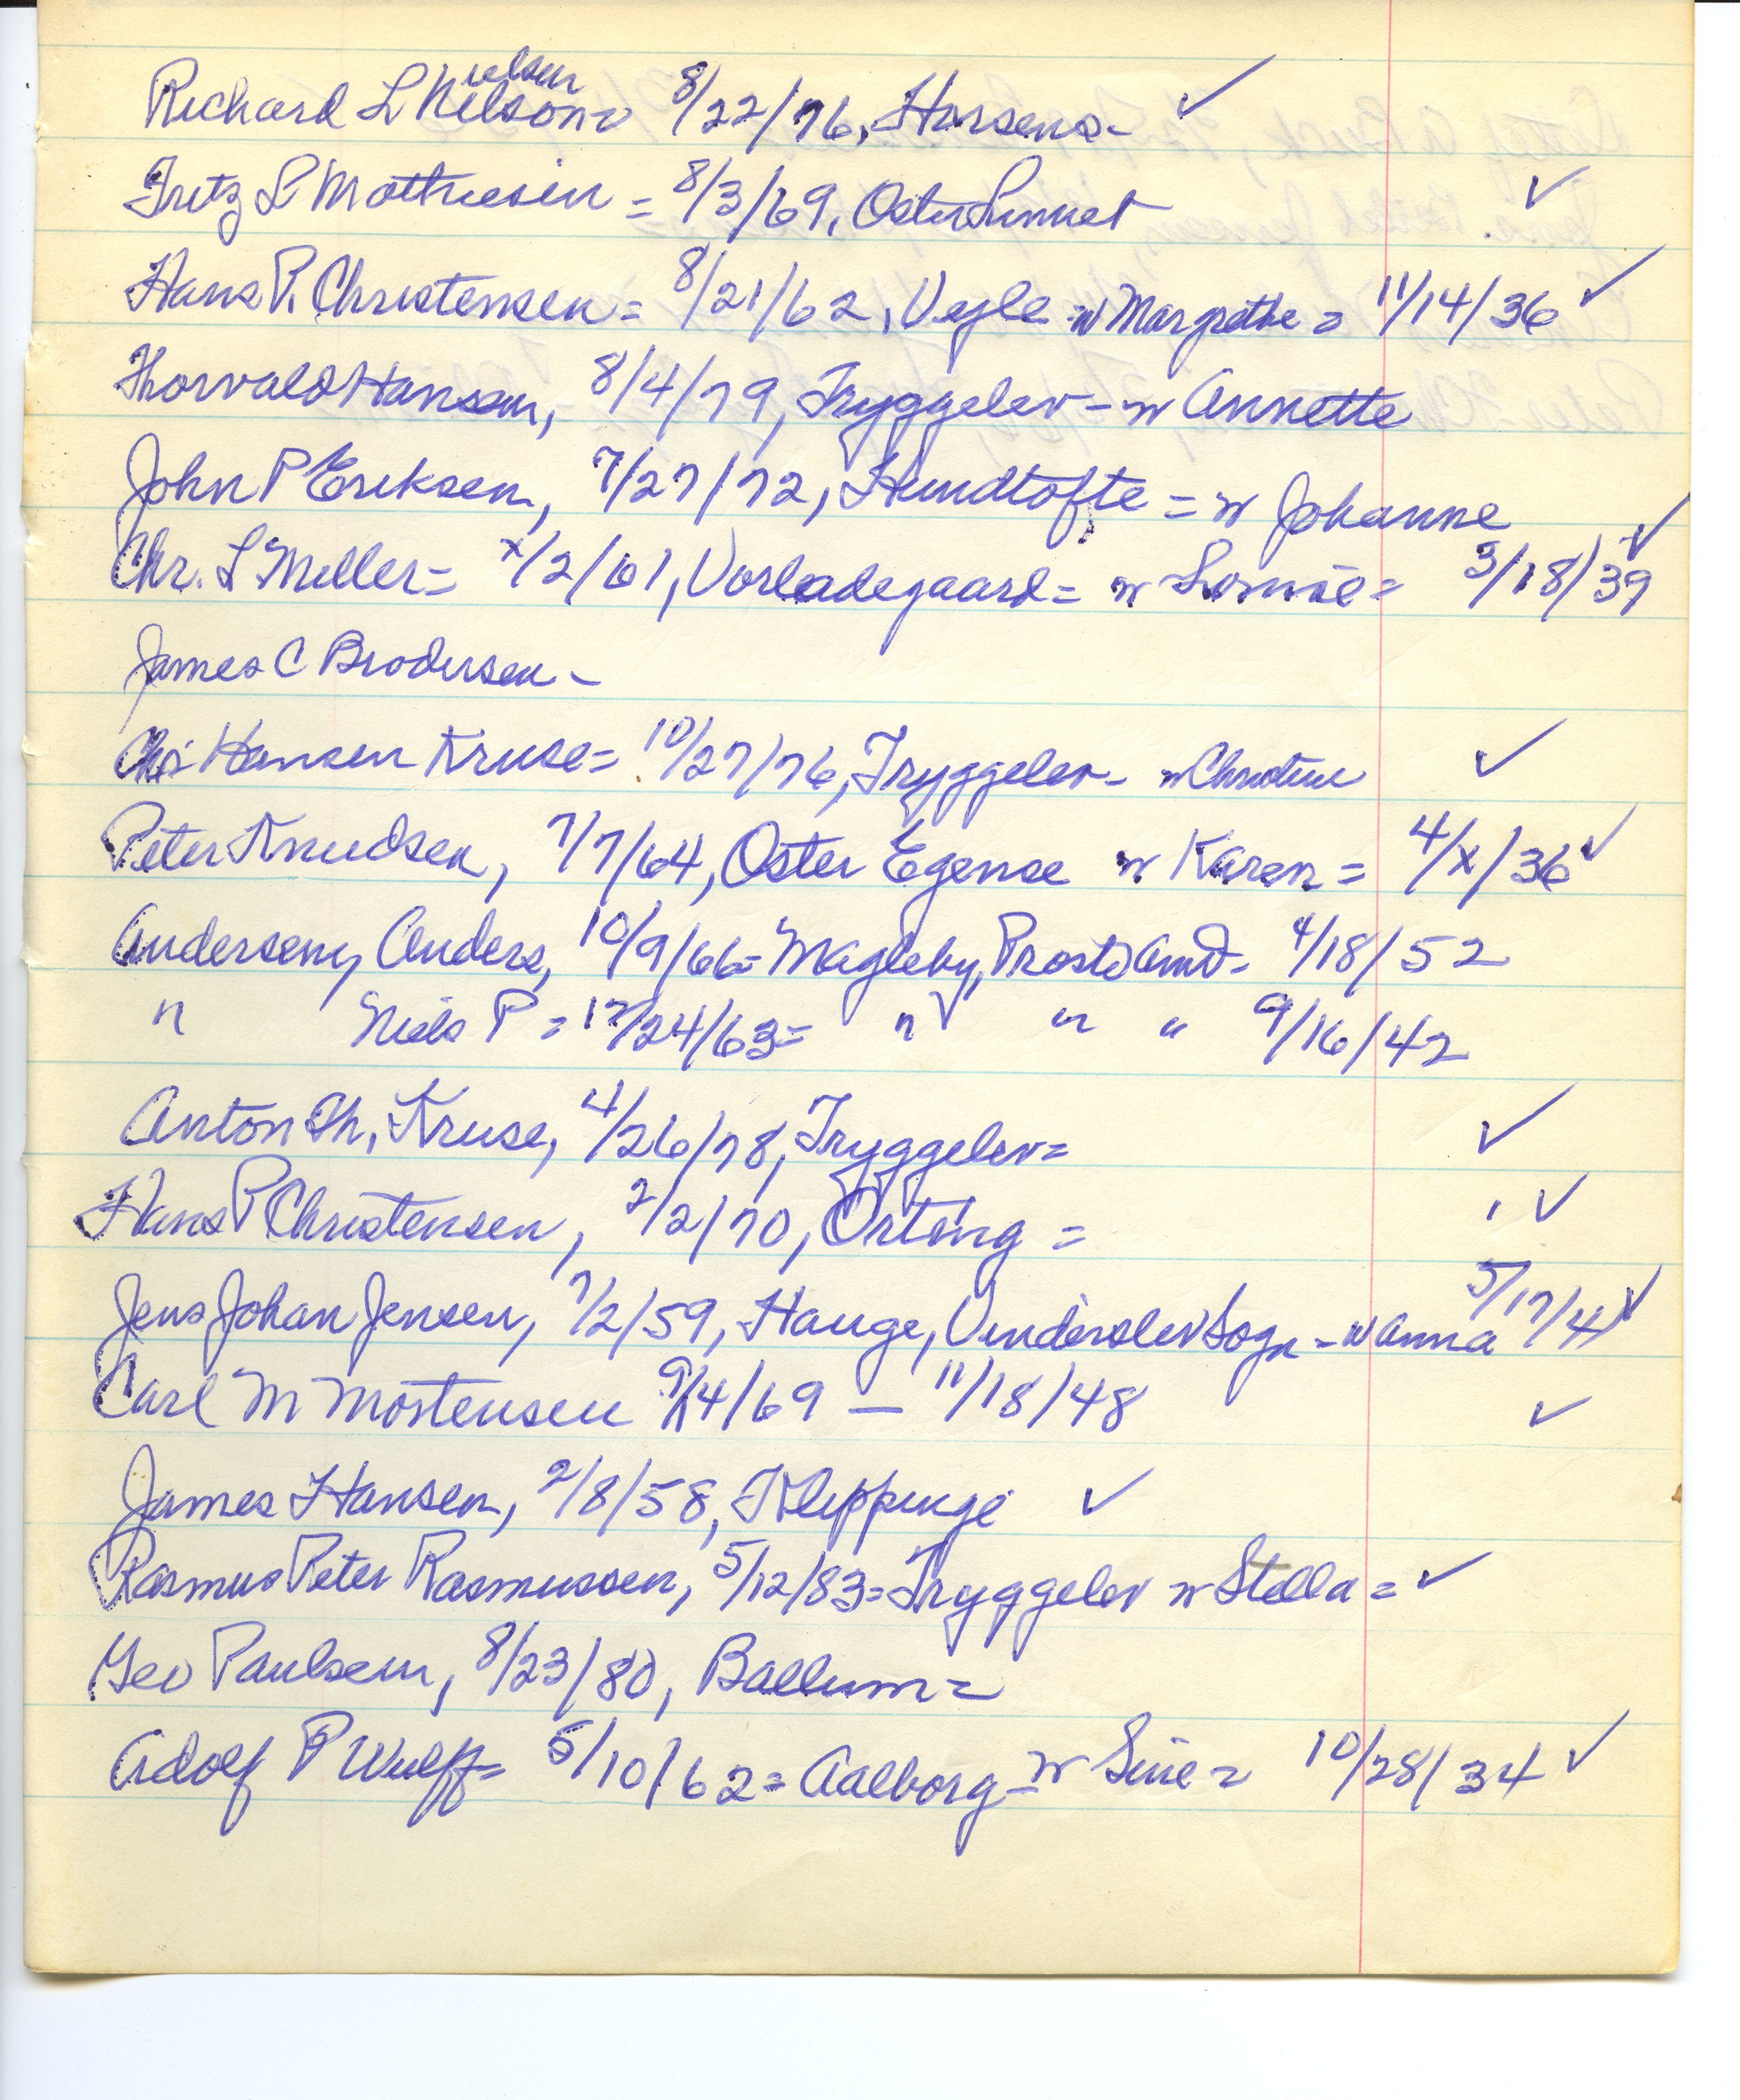 Nielsen
Richard L Nelson 8/22/76, Horsens - ✓
Fritz L Mathiesin = 8/3/69, Oster Linnet ✓
Hans P. Christensen = 8/21/62, Vejle = w Margrethe = 11/14/36 ✓
Thorvald Hansen, 8/4/79, Tryggelev - w Annette
John P Eriksen, 7/27/72, Hundtofte = w Johanne
Chr. L Meller = x/2/61, Vorladegaard = w Louise = 3/18/39 ✓
James C Brodersen -
Chr Hansen Kruse = 10/27/76, Tryggelev - w Christine ✓
Peter Knudsen, 7/7/64, Oster Egense w Karen = 4/x/36 ✓
Andersen, Anders, 10/9/66 = Magleby, Prosto Amt - 4/18/52
" Niels P = 12/24/63 = " ✓ " " 9/16/42
Anton Th. Kruse, 4/26/78, Tryggelev = ✓
Hans P Christensen, 2/2/70, Orting = ✓
Jens Johan Jensen, 7/2/59, Hauge, Vinderslev Sogn - w Anna 5/17/41 ✓
Carl M Mortensen 9/14/69 — 11/18/48 ✓
James Hansen, 2/8/58, Klippinge ✓
Rasmus Peter Rasmussen, 5/12/83 = Tryggelev w Stella = ✓
Geo Paulsen, 8/23/80, Ballum =
Adolf P Wulff = 5/10/62 = Aalborg - w Sine = 10/28/34 ✓